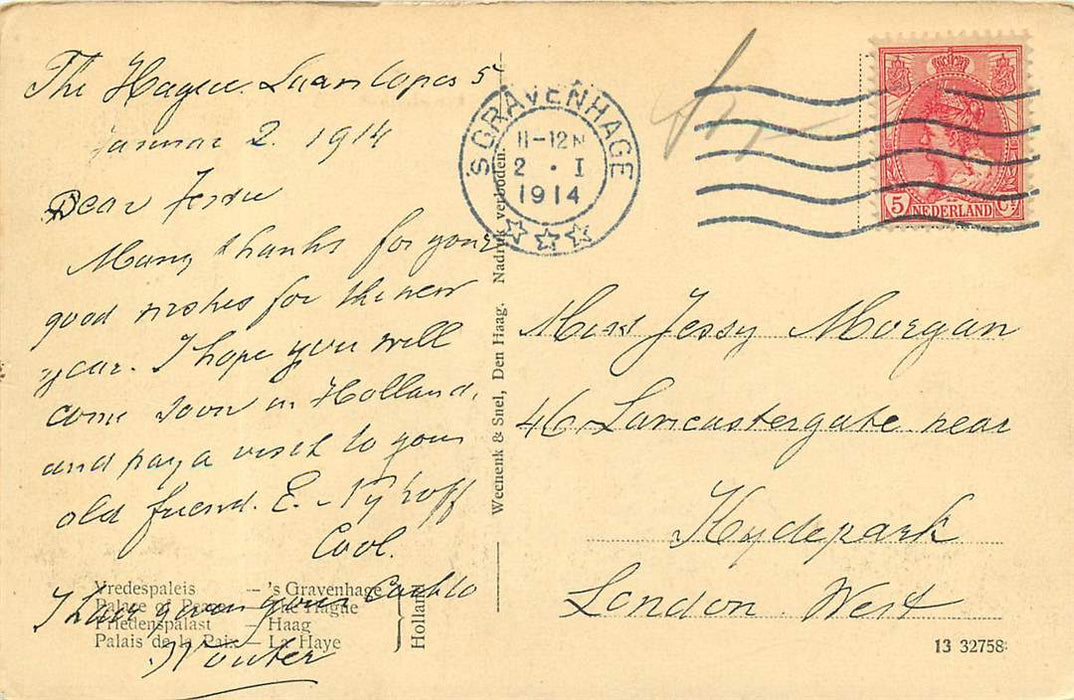 The Hague Laan Copes 5
Januar 2. 1914
Dear Jessie
Many thanks for your
good wishes for the new
year. I hope you will
come soon in Holland,
and pay a visit to your
old friend. E.
Cool.
I have given your card to
Wouter
Vredespaleis — 's Gravenhage
Palace of Peace — The Hague
Friedenspalast — Haag
Palais de la Paix — La Haye
Holland
Weenenk & Snel, Den Haag. Nadruk verboden.
'SGRAVENHAGE
11-12N
2 · I
1914
5 NEDERLAND Ct
Miss Jessy Morgan
46 Lancastergate near
Hydepark
London West
13 32758